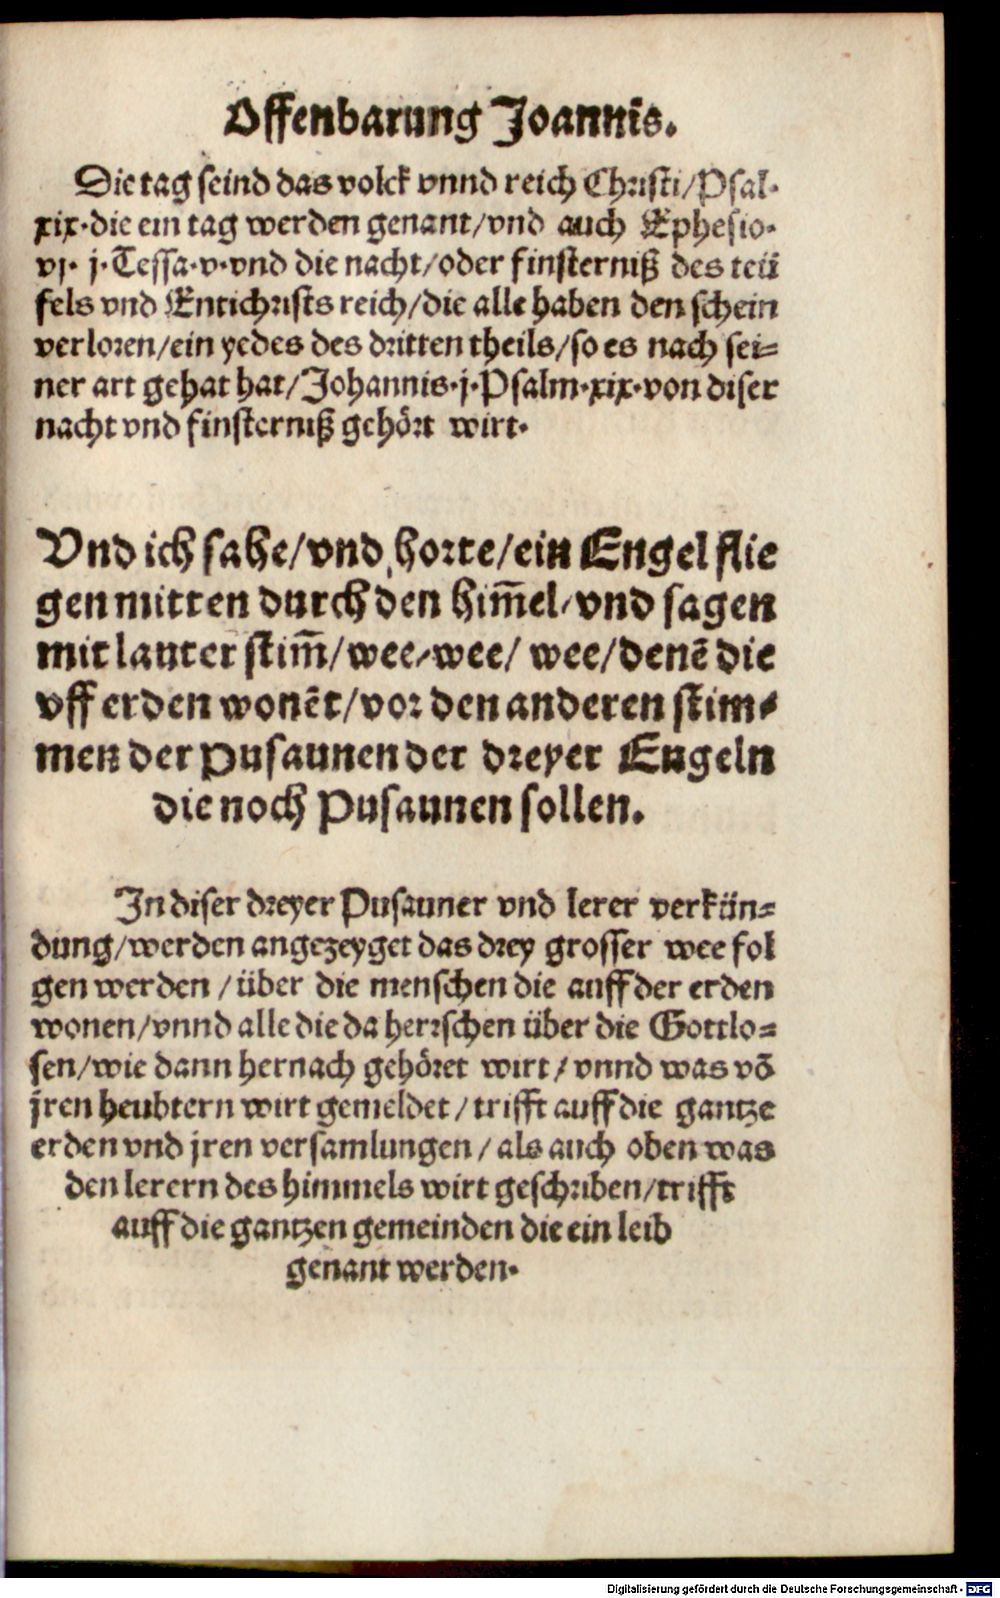 Offenbarung Joannis.
Die tag seind das volck vnnd reich Christi/Psal.
xix.die ein tag werden genant/vnd auch Ephesio.
vj. j.Tessa.v.vnd die nacht/oder finsterniß des teü
fels vnd Entichrists reich/die alle haben den schein
verloren/ein yedes des dritten theils/so es nach sei-
ner art gehat hat/Johannis.j.Psalm.xix.von diser
nacht vnd finsterniß gehört wirt.
Vnd ich sahe/vnd horte/ein Engel flie
gen mitten durch den him̄el/vnd sagen
mit lauter stim̄/wee/wee/ wee/denē die
vff erden wonēt/vor den anderen stim-
men der pusaunen der dreyer Engeln
die noch Pusaunen sollen.
In diser dreyer Pusauner vnd lerer verkün-
dung/werden angezeyget das drey grosser wee fol
gen werden /über die menschen die auff der erden
wonen/vnnd alle die da herrschen über die Gottlo-
sen/wie dann hernach gehöret wirt/ vnnd was võ
jren heubtern wirt gemeldet /trifft auff die gantze
erden vnd jren versamlungen /als auch oben was
den lerern des himmels wirt geschriben/trifft
auff die gantzen gemeinden die ein leib
genant werden.
Digitalisierung gefördert durch die Deutsche Forschungsgemeinschaft - DFG